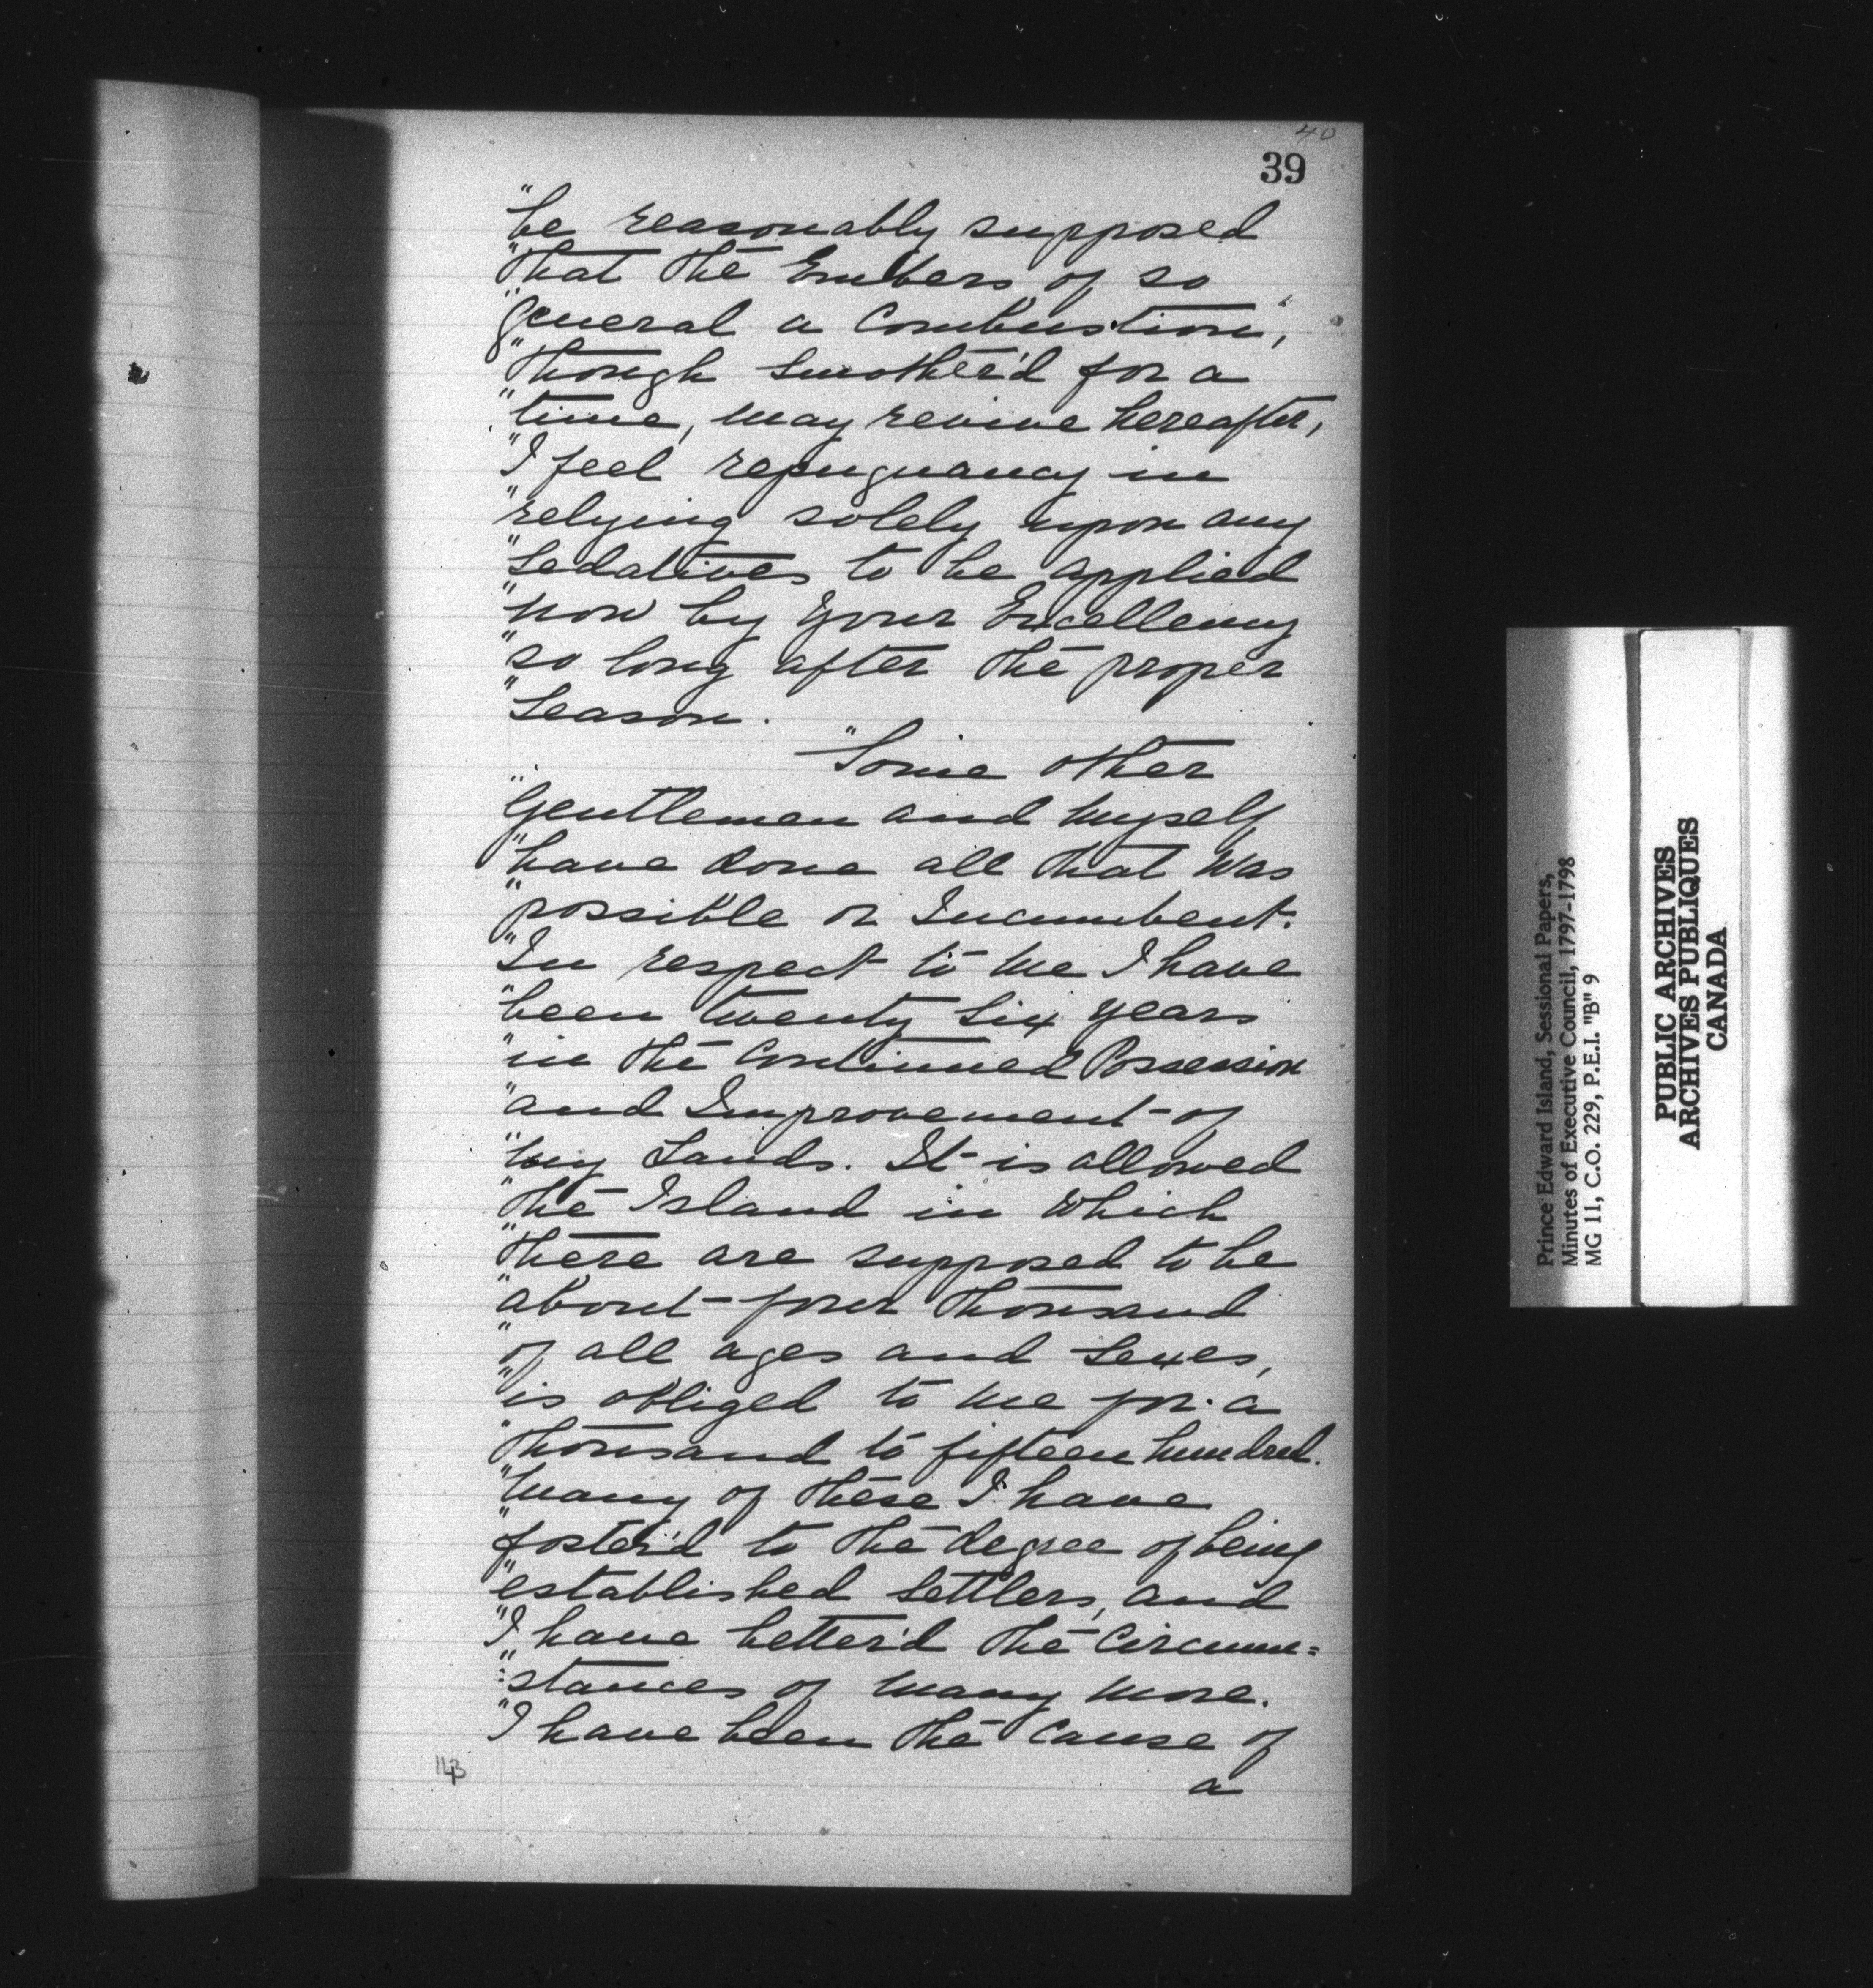 40
39
"be reasonably supposed
"that the Embers of so
"general a Combustion,
"though smother'd for a
"time, may revive hereafter,
"I feel repugnancy in
"relying solely upon any
"Sedatives to be applied
"now by your Excellency
"so long after the proper
"Season.
"Some other
"Gentlemen and myself
"have done all that was
"possible or Incumbent.
"In respect to me I have
"been twenty six years
"in the Continued Possession
"and Improvement of
"my Lands. It is allowed
"the Island in which
"there are supposed to be
"about four thousand
"of all ages and Sexes,
"is obliged to me for a
"thousand to fifteen hundred.
"many of these I have
"foster'd to the degree of being
"established Settlers, and
"I have better'd the Circum=
":stances of many more.
"I have been the Cause of
a
143
Prince Edward Island, Sessional Papers,
Minutes of Executive Council, 1797-1798
MG 11, C.O. 229, P.E.I. "B" 9
PUBLIC ARCHIVES
ARCHIVES PUBLIQUES
CANADA